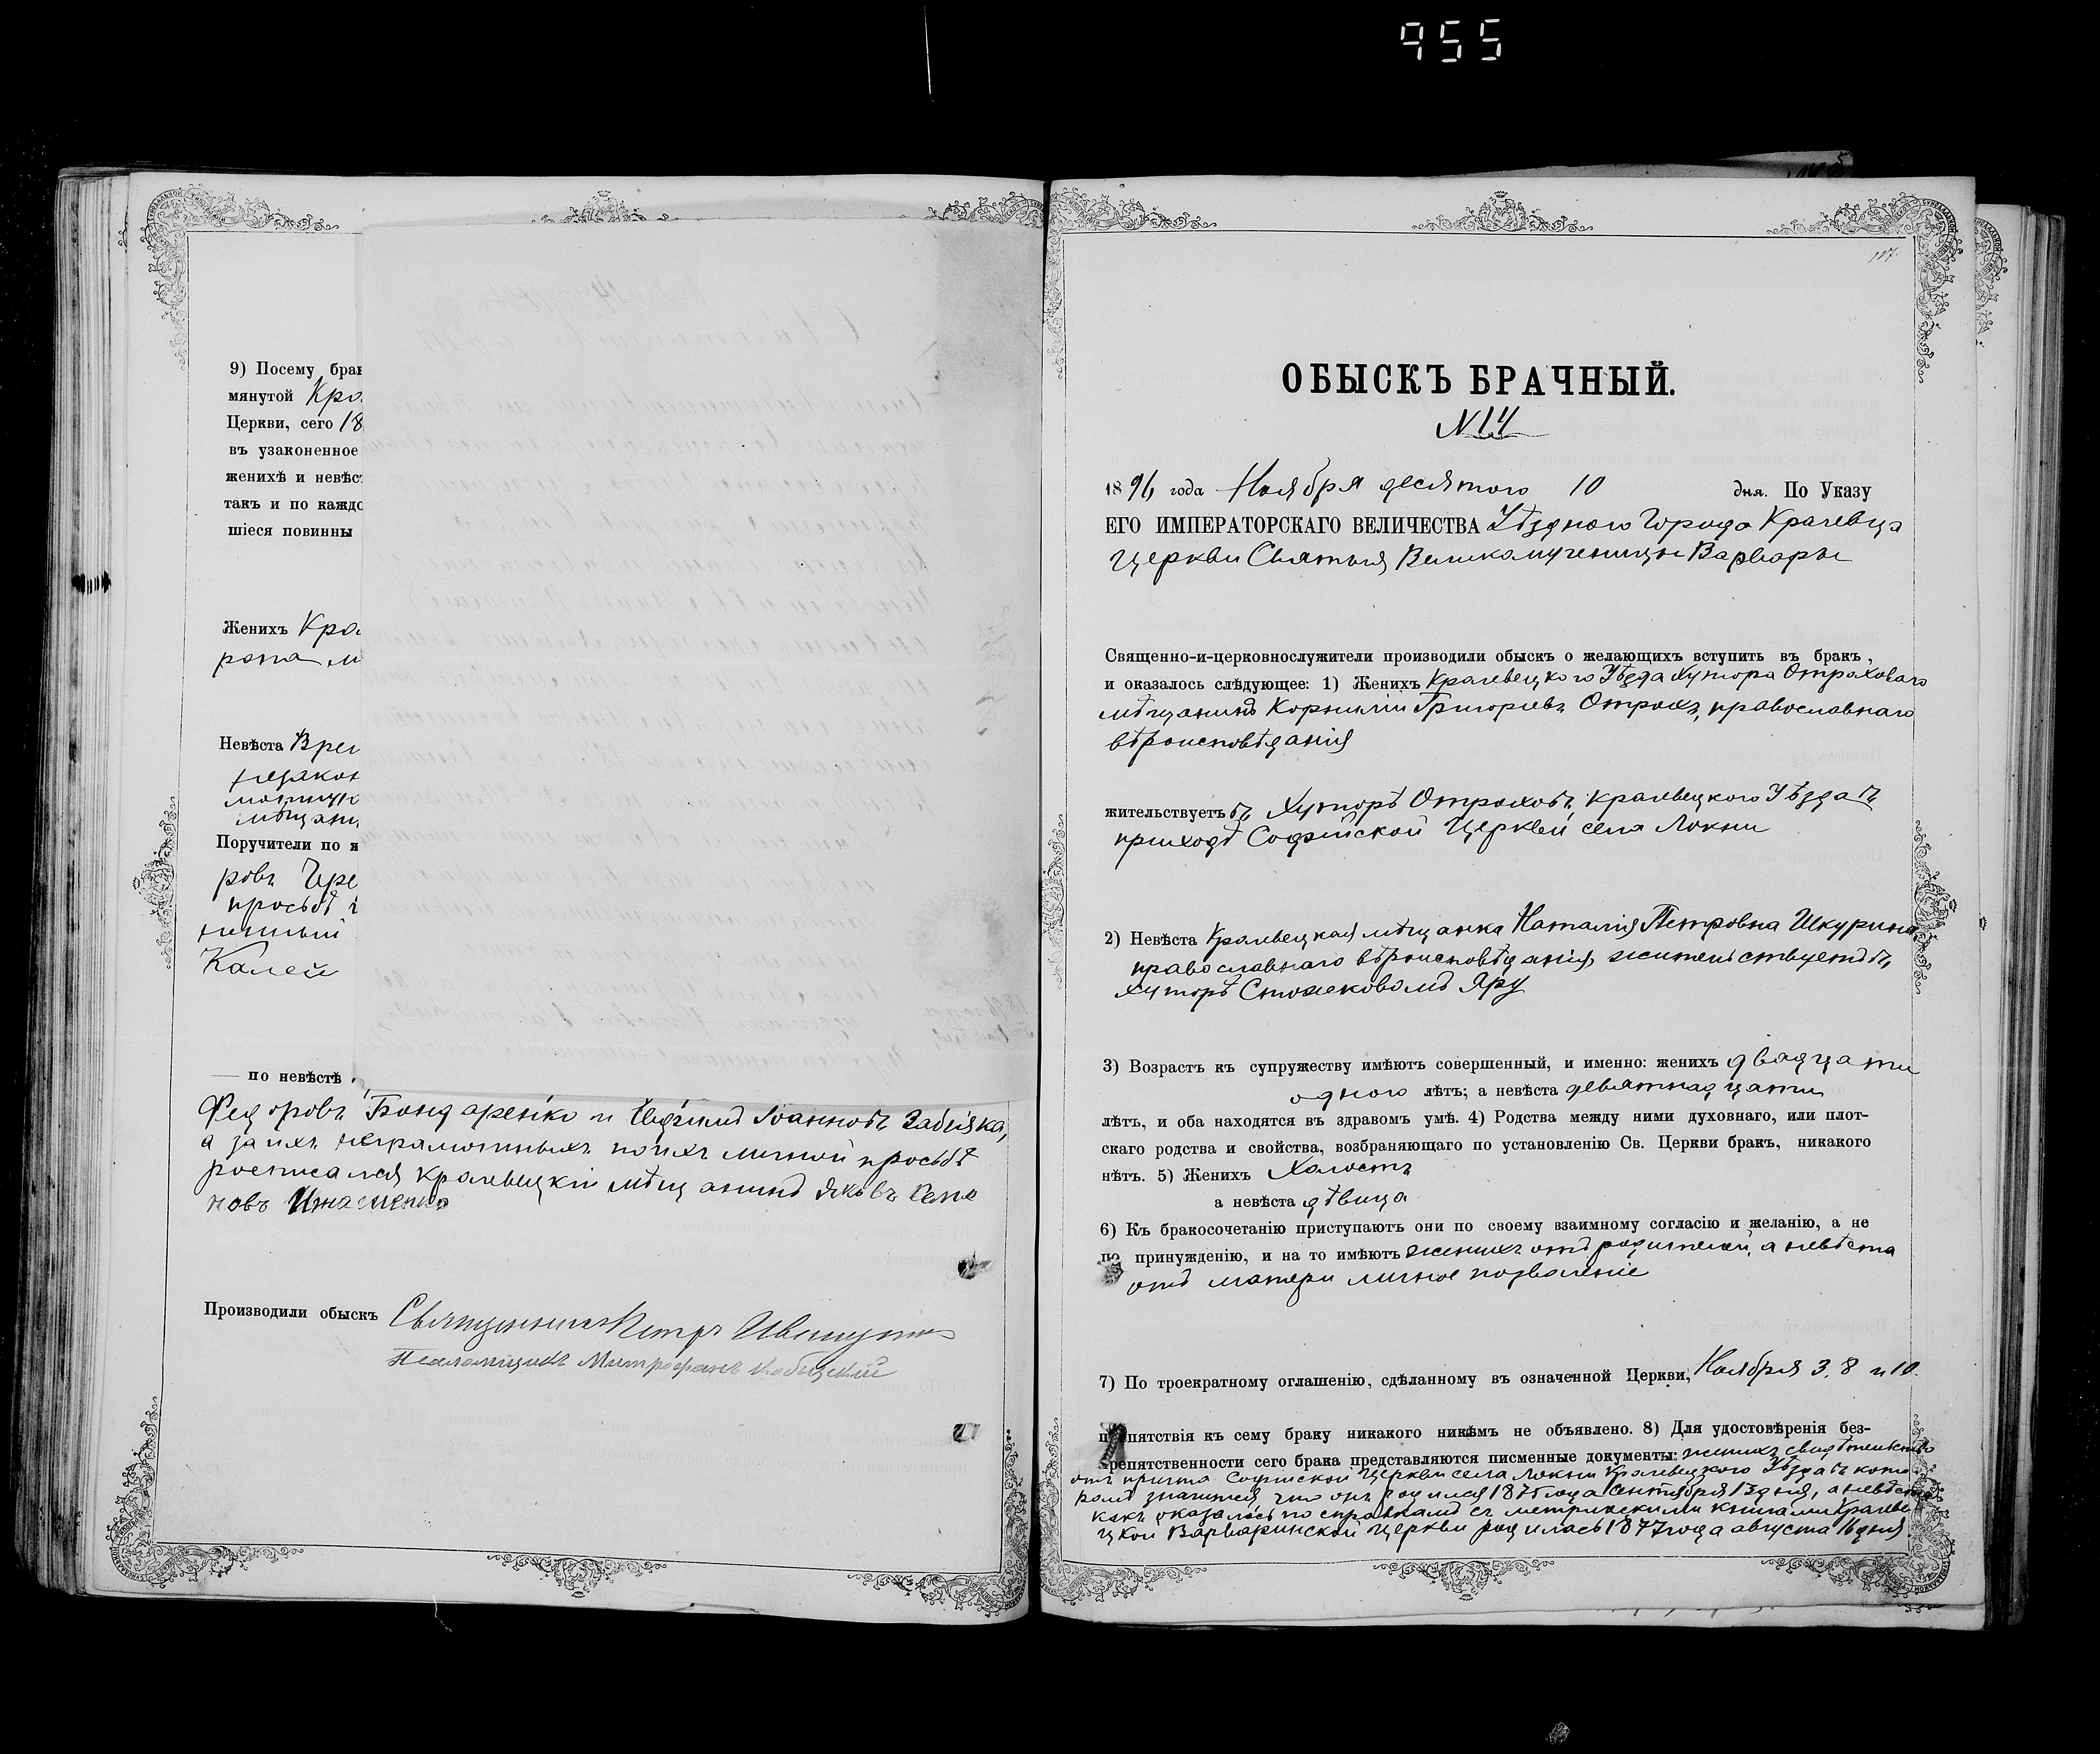 955
9) Посему брак
мянутой Кро
Церкви, сего 18
въ узаконенное
женихѣ и невѣс
такъ и по каждо
шіеся повинны
Женихъ Кро
рода м
Невѣста Вре
незакон
мѣщан
Поручители по я
ровъ Чре
просьбѣ
Калей
по невѣстѣ
Федоровъ Бондаренко и Ефимъ Іоанновъ Забіяка,
а за ихъ неграмотныхъ по ихъ личной просьбѣ
росписался Кролевецкій мѣщанинъ Яковъ Семе
новъ Игнатенко
Производили обыскъ Священникъ Петръ
Псаломщикъ Митрофанъ
107
ОБЫСКЪ БРАЧНЫЙ.
N 14
1896 года Ноября десятого 10 дня. По Указу
ЕГО ИМПЕРАТОРСКАГО ВЕЛИЧЕСТВА Уѣздного Города Кролевца
Церкви Святыя Великомученицы Варвары
Священно-и-церковнослужители производили обыскъ о желающихъ вступить въ бракъ,
и оказалось слѣдующее: 1) Женихъ Кролевецкого Уѣзда Хутора Отрохового
мѣщанинъ Корнилій Григоріевъ Отрохъ, православнаго
вѣроисповѣданія
жительствуетъ въ Хуторѣ Отроховѣ, Кролевецкого Уѣзда въ
приходѣ Софійской Церкви села Локни
2) Невѣста Кролевецкая мѣщанка Наталія Петровна Шкурина
православнаго вѣроисповѣданія, жительствуетъ въ
Хуторѣ Стожековомъ Яру
3) Возрастъ къ супружеству имѣютъ совершенный, и именно: женихъ двадцати
одного лѣтъ; а невѣста девятнадцати
лѣтъ, и оба находятся въ здравомъ умѣ. 4) Родства между ними духовнаго, или плот-
скаго родства и свойства, возбраняющаго по установленію Св. Церкви бракъ, никакого
нѣтъ. 5) Женихъ Холостъ
а невѣста дѣвица
6) Къ бракосочетанію приступаютъ они по своему взаимному согласію и желанію, а не
по принужденію, и на то имѣютъ женихъ отъ родителей, а невѣста
отъ матери личное позволеніе
7) По троекратному оглашенію, сдѣланному въ означенной Церкви, Ноября 3, 8 и 10.
препятствія къ сему браку никакого никѣмъ не объявлено. 8) Для удостовѣренія без-
препятственности сего брака представляются писменные документы: женихъ свидѣтельство
отъ причта Софійской Церкви села Локни Кролевецкого Уѣзда въ кото
ромъ значится что онъ родился 1875 года Сентября 13 дня, а невѣста
какъ оказалось по справкамъ съ метрическими книгами Кролеве
цкой Варваринской Церкви родилась 1877 года августа 16 дня.